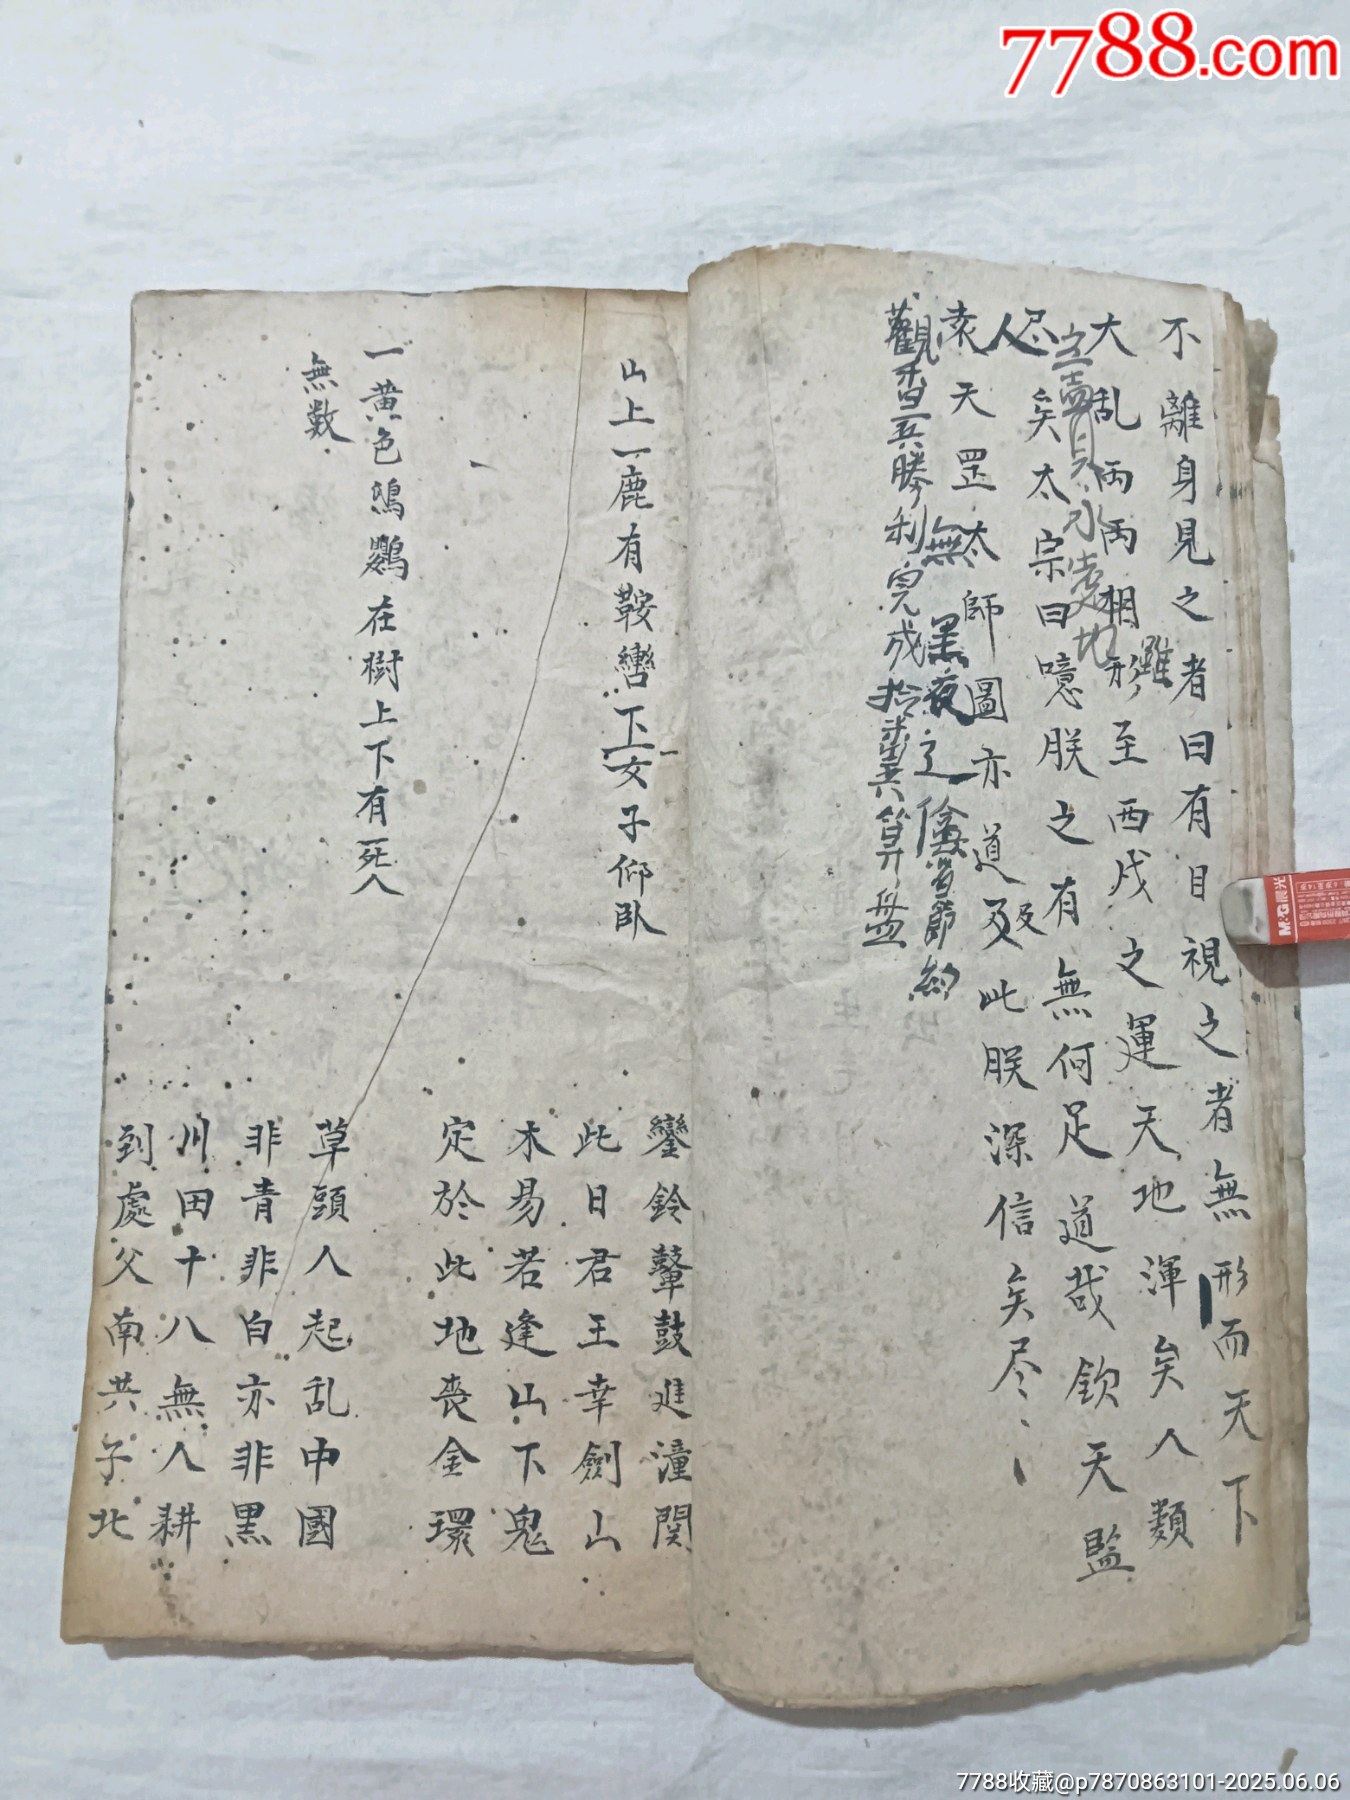 7788.com
不離身見之者曰有目視之者無形而天下
大乱両両相形雖至酉戌之運天地渾矣人類
尽矣太宗曰噫朕之有無何足道哉欽天監
人
袁天罡太師圖亦道及此朕深信矣尽
無黑夜之
勝利完成
算盤
山上一鹿有鞍轡下一女子仰臥
鑾鈴鼙鼓進潼関
此日君王幸劍山
木易若逢山下鬼
定於此地喪金環
一黄色鴻鸚在樹上下有死人
無数
草頭人起乱中國
非青非白亦非黒
川田十八無人耕
到處父南共子北
M&G晨光
7788收藏@p7870863101-2025.06.06